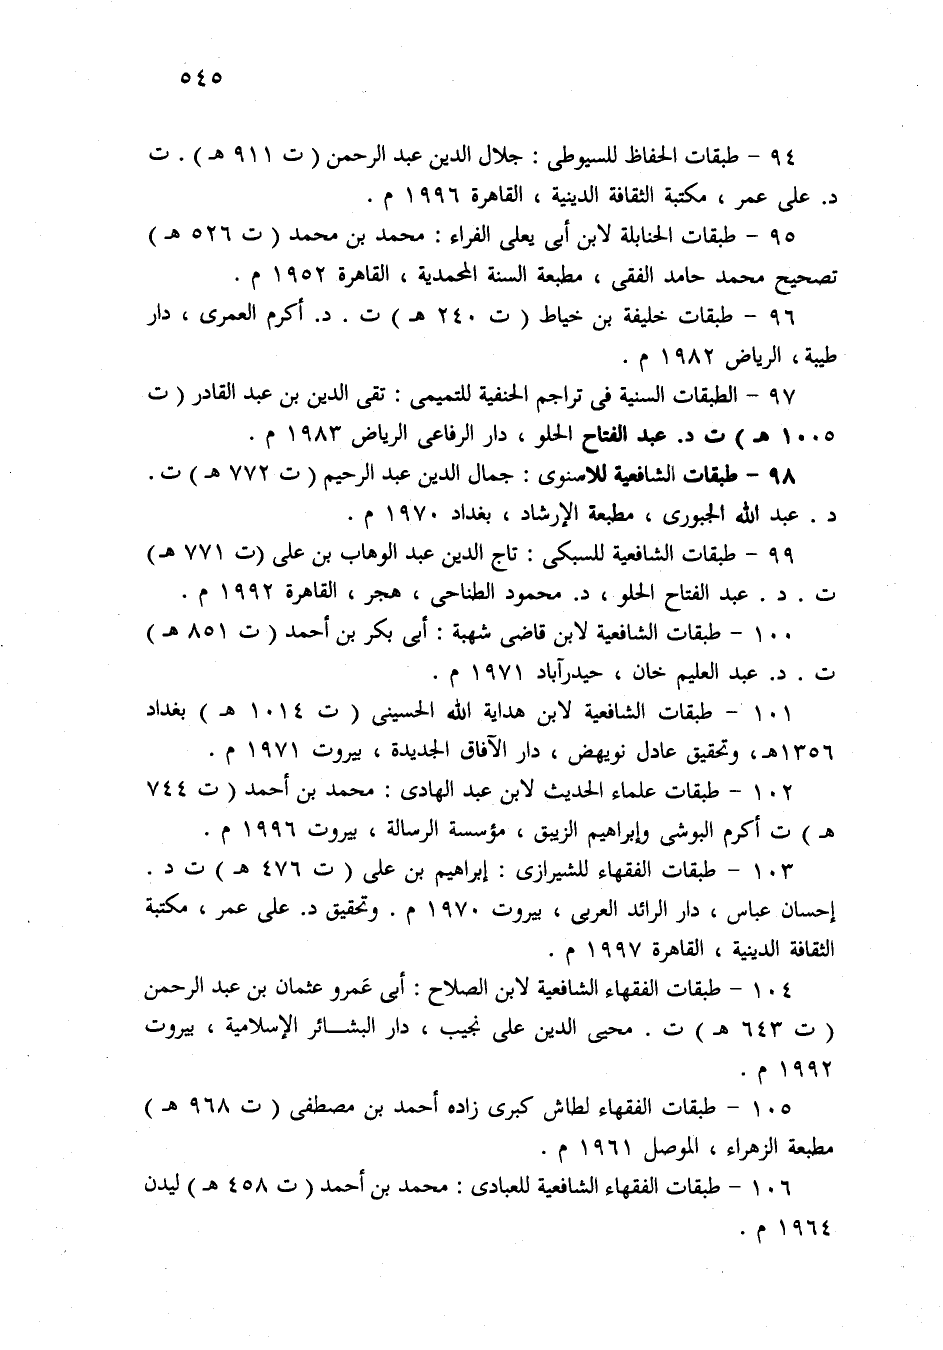 ٥٤٥
٩٤ – طبقات الحفاظ للسيوطى : جلال الدين عبد الرحمن ( ت ٩١١ هـ ) . ت
د. على عمر ، مكتبة الثقافة الدينية ، القاهرة ١٩٩٦ م .
٩٥ – طبقات الحنابلة لابن أبى يعلى الفراء : محمد بن محمد ( ت ٥٢٦ هـ )
تصحيح محمد حامد الفقى ، مطبعة السنة المحمدية ، القاهرة ١٩٥٢ م .
٩٦ – طبقات خليفة بن خياط ( ت ٢٤٠ هـ ) ت . د. أكرم العمرى ، دار
طيبة ، الرياض ١٩٨٢ م .
٩٧ – الطبقات السنية فى تراجم الحنفية للتميمى : تقى الدين بن عبد القادر ( ت
١٠٠٥ هـ ) ت د. عبد الفتاح الحلو ، دار الرفاعى الرياض ١٩٨٣ م .
٩٨ – طبقات الشافعية للاسنوى : جمال الدين عبد الرحيم ( ت ٧٧٢ هـ ) ت .
د . عبد الله الجبورى ، مطبعة الإرشاد ، بغداد ١٩٧٠ م .
٩٩ – طبقات الشافعية للسبكى : تاج الدين عبد الوهاب بن على (ت ٧٧١ هـ)
ت . د . عبد الفتاح الحلو ، د. محمود الطناحى ، هجر ، القاهرة ١٩٩٢ م .
١٠٠ – طبقات الشافعية لابن قاضى شهبة : أبى بكر بن أحمد ( ت ٨٥١ هـ )
ت . د. عبد العليم خان ، حيدرآباد ١٩٧١ م .
١٠١ – طبقات الشافعية لابن هداية الله الحسينى ( ت ١٠١٤ هـ ) بغداد
١٣٥٦هـ، وتحقيق عادل نويهض ، دار الآفاق الجديدة ، بيروت ١٩٧١ م .
١٠٢ – طبقات علماء الحديث لابن عبد الهادى : محمد بن أحمد ( ت ٧٤٤
هـ ) ت أكرم البوشى وإبراهيم الزيبق ، مؤسسة الرسالة ، بيروت ١٩٩٦ م .
١٠٣ – طبقات الفقهاء للشيرازى : إبراهيم بن على ( ت ٤٧٦ هـ ) ت د .
إحسان عباس ، دار الرائد العربى ، بيروت ١٩٧٠ م . وتحقيق د. على عمر ، مكتبة
الثقافة الدينية ، القاهرة ١٩٩٧ م .
١٠٤ – طبقات الفقهاء الشافعية لابن الصلاح : أبى عَمرو عثمان بن عبد الرحمن
( ت ٦٤٣ هـ ) ت . محيى الدين على نجيب ، دار البشـــائر الإسلامية ، بيروت
١٩٩٢ م .
١٠٥ – طبقات الفقهاء لطاش كبرى زاده أحمد بن مصطفى ( ت ٩٦٨ هـ )
مطبعة الزهراء ، الموصل ١٩٦١ م .
١٠٦ – طبقات الفقهاء الشافعية للعبادى : محمد بن أحمد ( ت ٤٥٨ هـ ) ليدن
١٩٦٤ م .